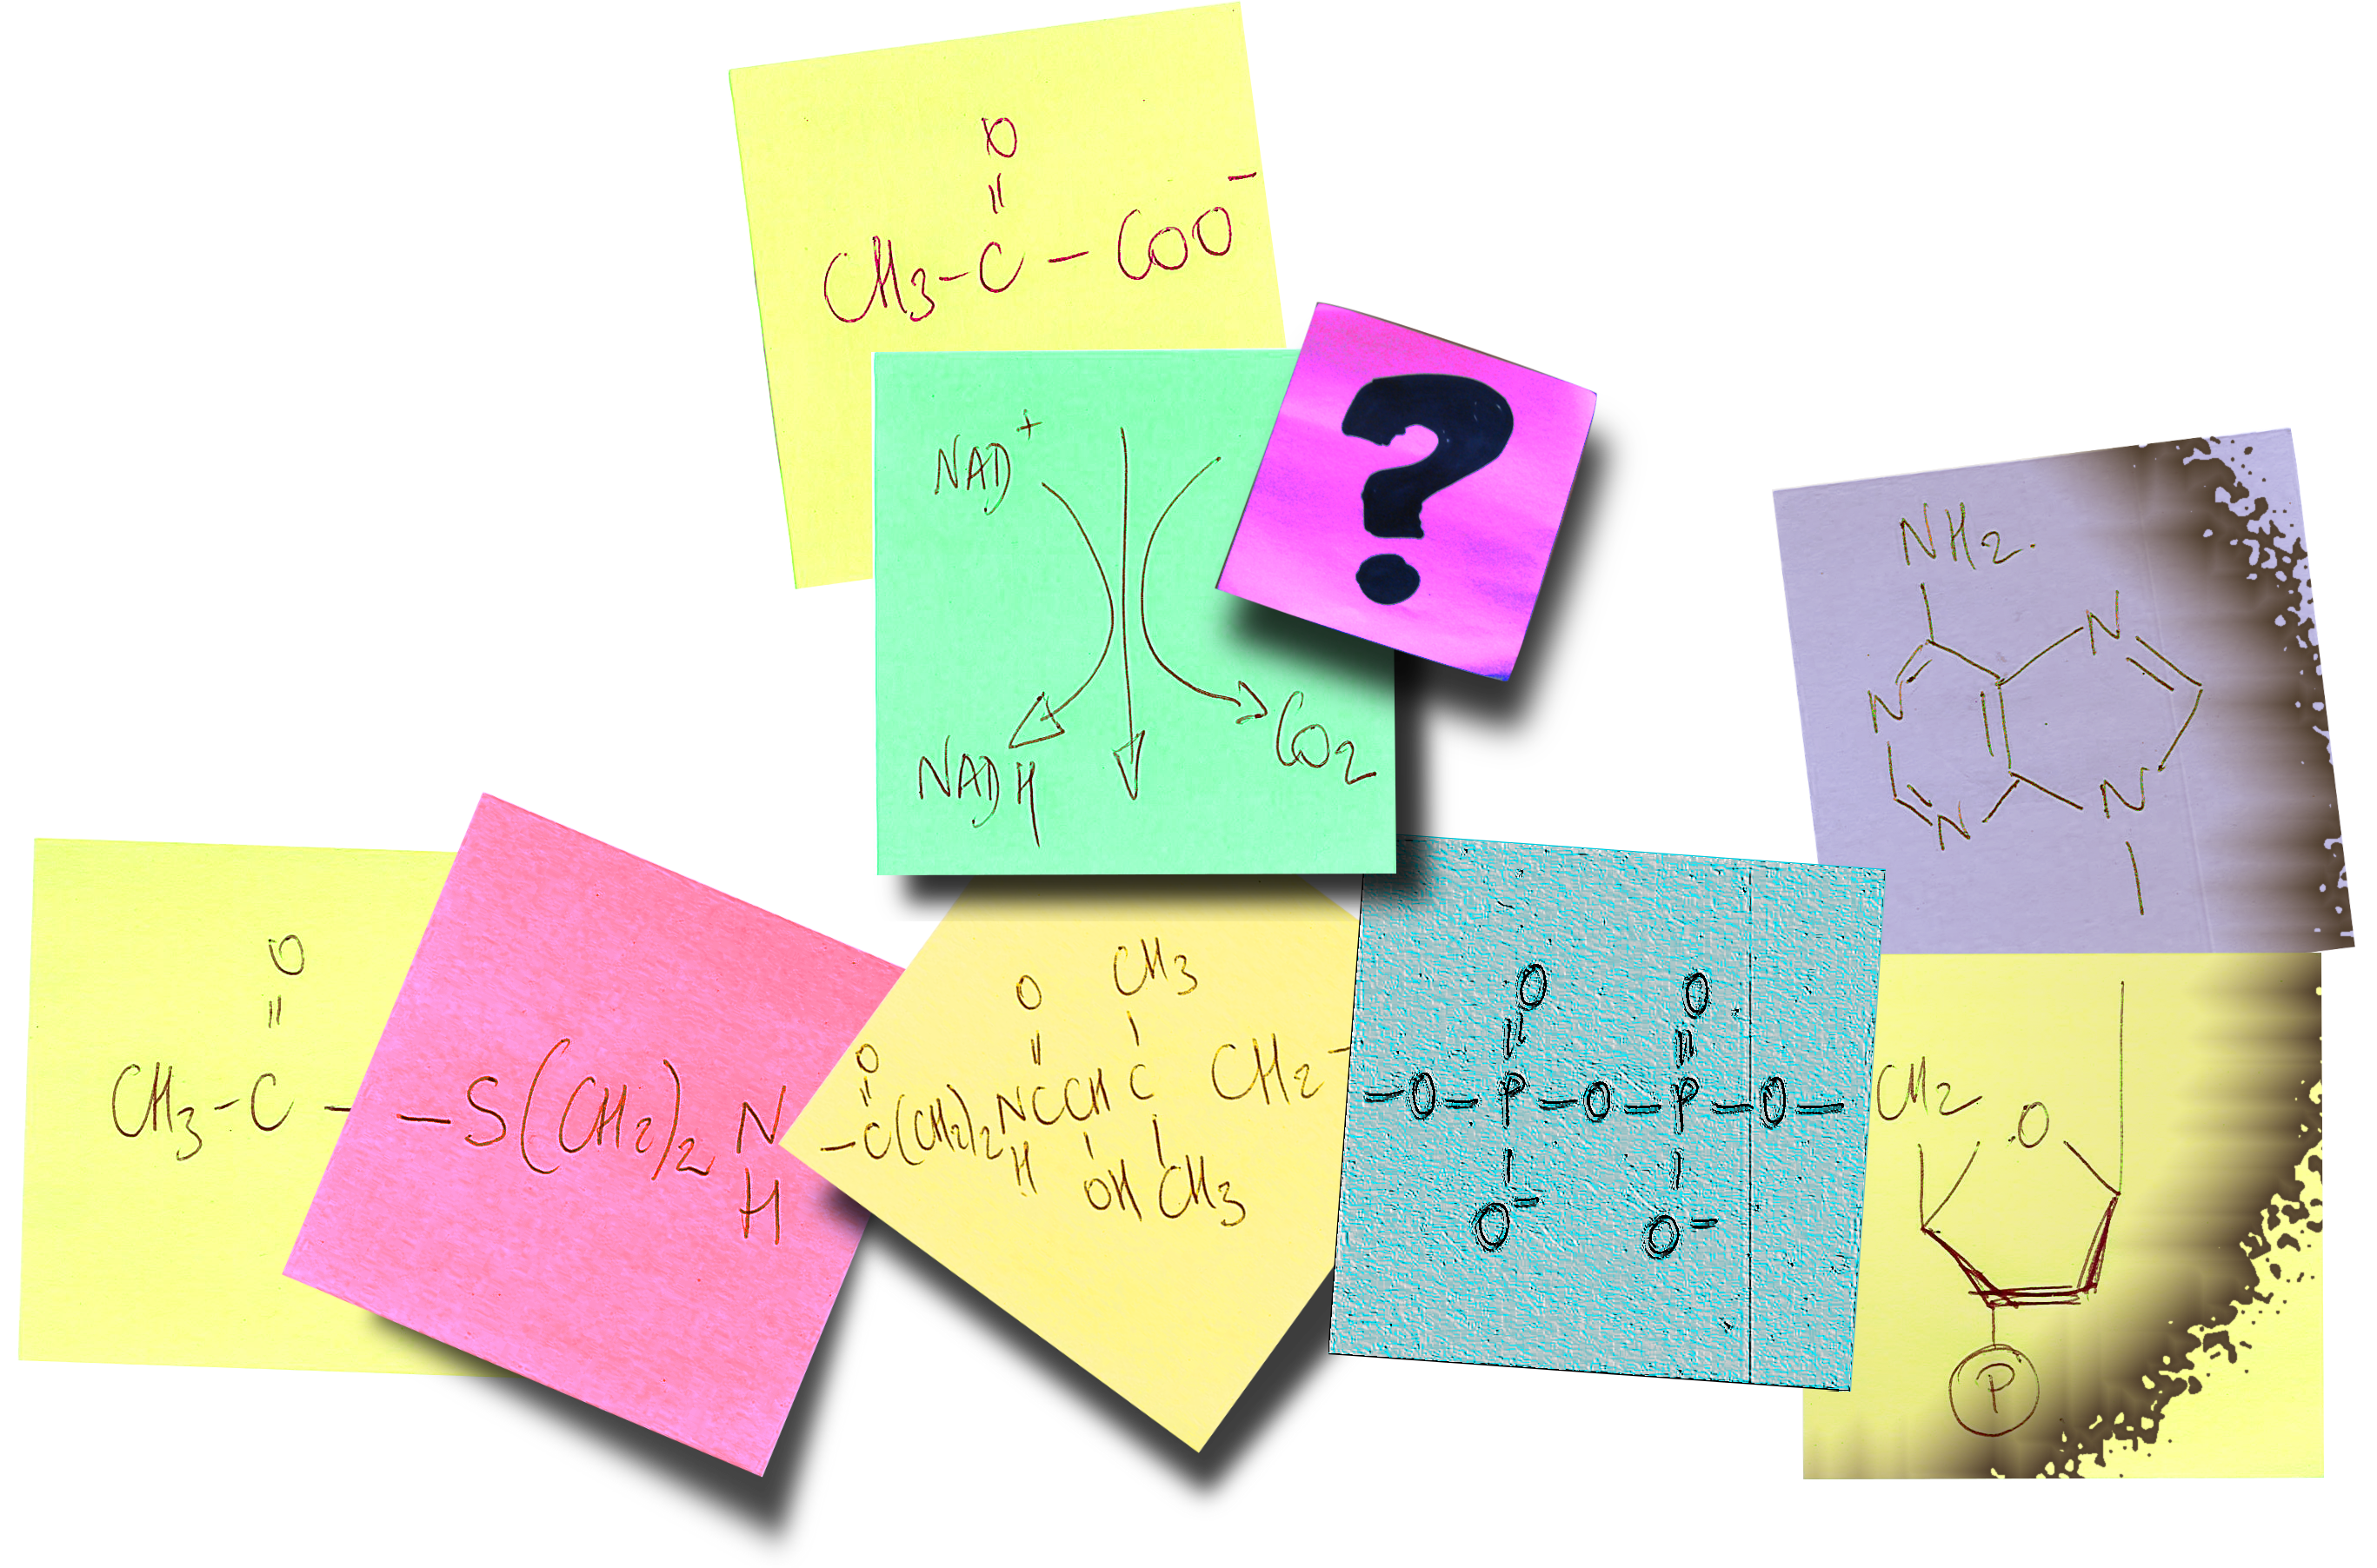 O
CH3-C-COO-
?
NAD+
NADH
CO2
NH2.
N
N
N
N
O
CH3-C-
-S(CH2)2N
H
O
O
CH3
-C(CH2)2NCCHC CH2-
H
OH
CH3
O O
-O-P-O-P-O-
O- O-
CH2
O
P